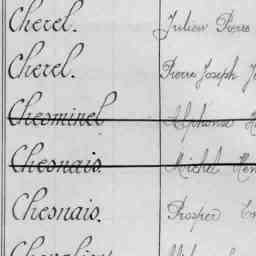 Cherel. Julien Pierre
Cherel. Pierre Joseph
Chesminel Alphonse
Chesnais. Michel
Chesnais. Prosper